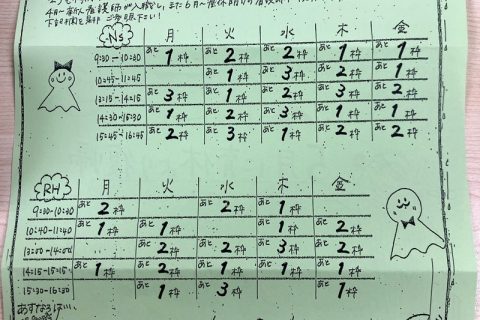 下記時間を是非ご参照下さい!
Ns 月 火 水 木 金
9:30-10:30 あと1枠 あと2枠 あと2枠 あと1枠 あと1枠
10:45-11:45 あと1枠 あと3枠 あと2枠 あと1枠
13:15-14:15 あと3枠 あと1枠 あと2枠 あと1枠 あと2枠
14:30-15:30 あと1枠 あと2枠 あと3枠 あと1枠 あと1枠
15:45-16:45 あと2枠 あと3枠 あと1枠 あと2枠 あと2枠
RH 月 火 水 木 金
9:30-10:30 あと2枠 あと2枠 あと1枠
10:40-11:40 あと1枠 あと1枠 あと2枠 あと1枠 あと2枠
13:00-14:00 あと2枠 あと2枠 あと3枠 あと2枠
14:15-15:15 あと1枠 あと2枠 あと2枠 あと1枠 あと1枠
15:30-16:30 あと1枠 あと3枠 あと1枠